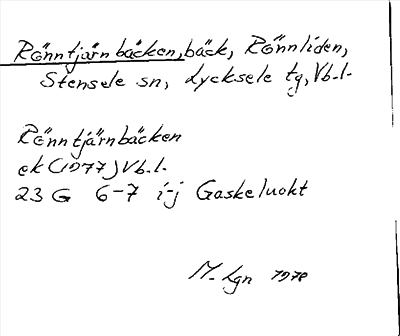 Rönntjärnbäcken, bäck, Rönnliden,
Stensele sn, Lycksele tg, Vb.l.
Rönntjärnbäcken
ek (1977) Vb.l.
23 G 6-7 i-j Gaskeluokt
M. Lgn 1978